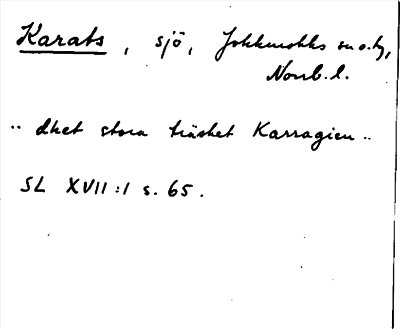 Karats, sjö, Jokkmokks sn o. tg,
Norrb. l.
.. dhet stora träsket Karragieu ..
SL XVII:1 s. 65.